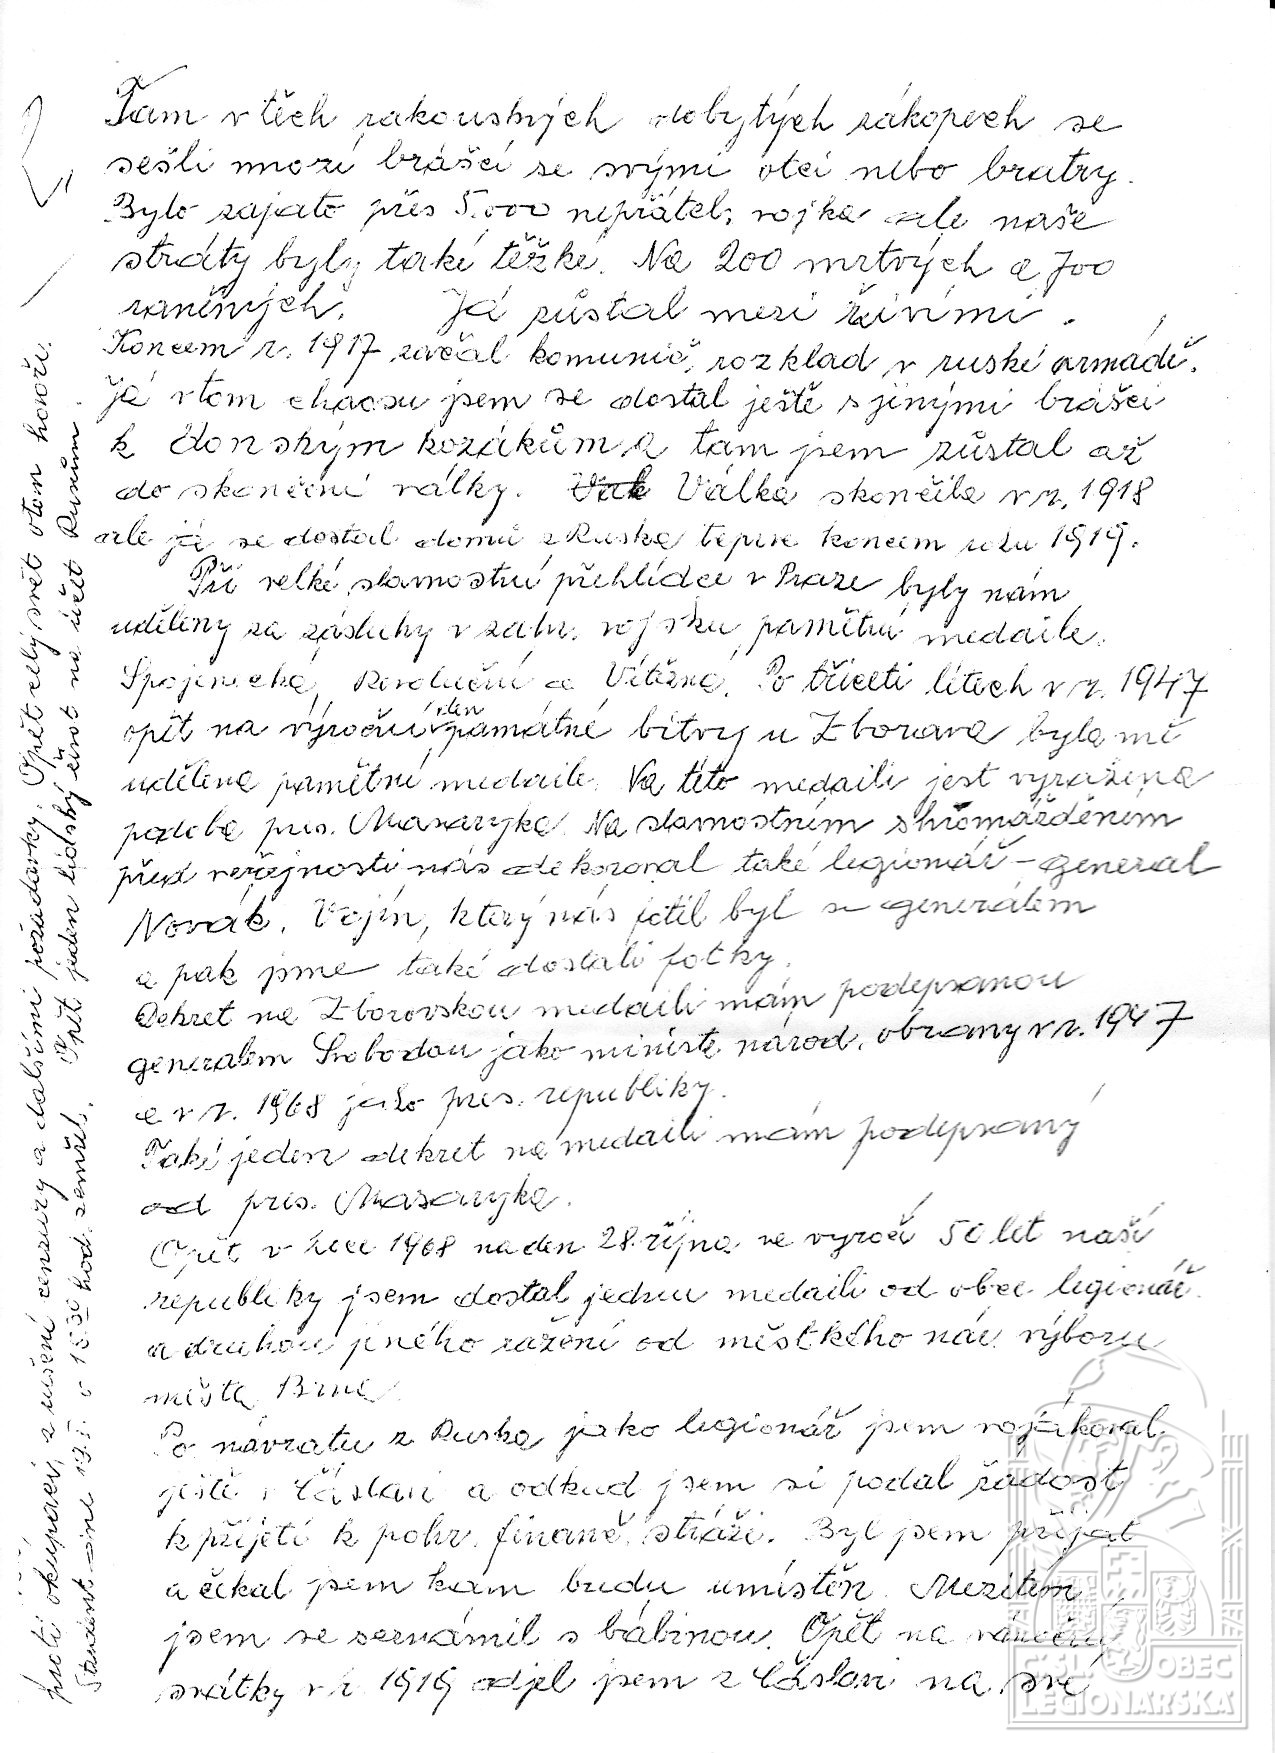 Tam v těch rakouských dobytých zákopech se
sešli mnozí brášci se svými otci nebo bratry.
Bylo zajato přes 5.000 nepřátel, vojska ale naše
stráty byly také těžké. Na 200 mrtvých a 700
raněných. Já zůstal mezi živími.
Koncem r. 1917 začal komunič. rozklad v ruské armádě.
Já v tom chaosu jsem se dostal ještě s jinými brášci
k donským kozákům a tam jsem zůstal až
do skončení války. Válka skončila v r. 1918
ale já se dostal domů z Ruska teprve koncem roku 1919.
Při velké slavnostní přehlídce v Praze byly nám
uděleny za zásluhy v zahr. vojsku pamětní medaile.
Spojenecká, Revoluční a Vítězná. Po třiceti létech v r. 1947
opět na výroční den památné bitvy u Zborova byla mě
udělena pamětní medaile. Na této medaili jest vyražena
podoba pres. Masaryka. Na slavnostním shromážděním
před veřejnosti nás dekoroval také legionář – general
Novák. Vojín, který nás fotil byl s generálem
a pak jsme také dostali fotky.
Dekret na Zborovskou medaili mám podepsanou
generalem Svobodou jako ministr národ. obrany v r. 1947
a v r. 1968 jako pres. republiky.
Také jeden dekret na medaili mám podepsaný
od pres. Masaryka.
Opět v roce 1968 na den 28. října ve vyročí 50 let naší
republiky jsem dostal jednu medaili od obce legionář.
a druhou jiného ražení od městkého nár. výboru
města Brna.
Po návratu z Ruska jako legionář jsem vojákoval
ještě v Čáslavi a odkud jsem si podal žádost
k přijetí k pohr. finanč. stráži. Byl jsem přijat
a čekal jsem kam budu umístěn. Mezitím
jsem se seznámil s bábinou. Opět na vánoční
svátky v r. 1919 odjel jsem z Čáslavi na své
proti okupaci, zrušení cenzury a dalšími požadavky. Opět celý svět o tom hovoří.
Student dne 19.I. v 15 30 hod. zemřel. Opět jeden lidský život na účet Rusům.
ČS. OBEC
LEGIONÁŘSKÁ